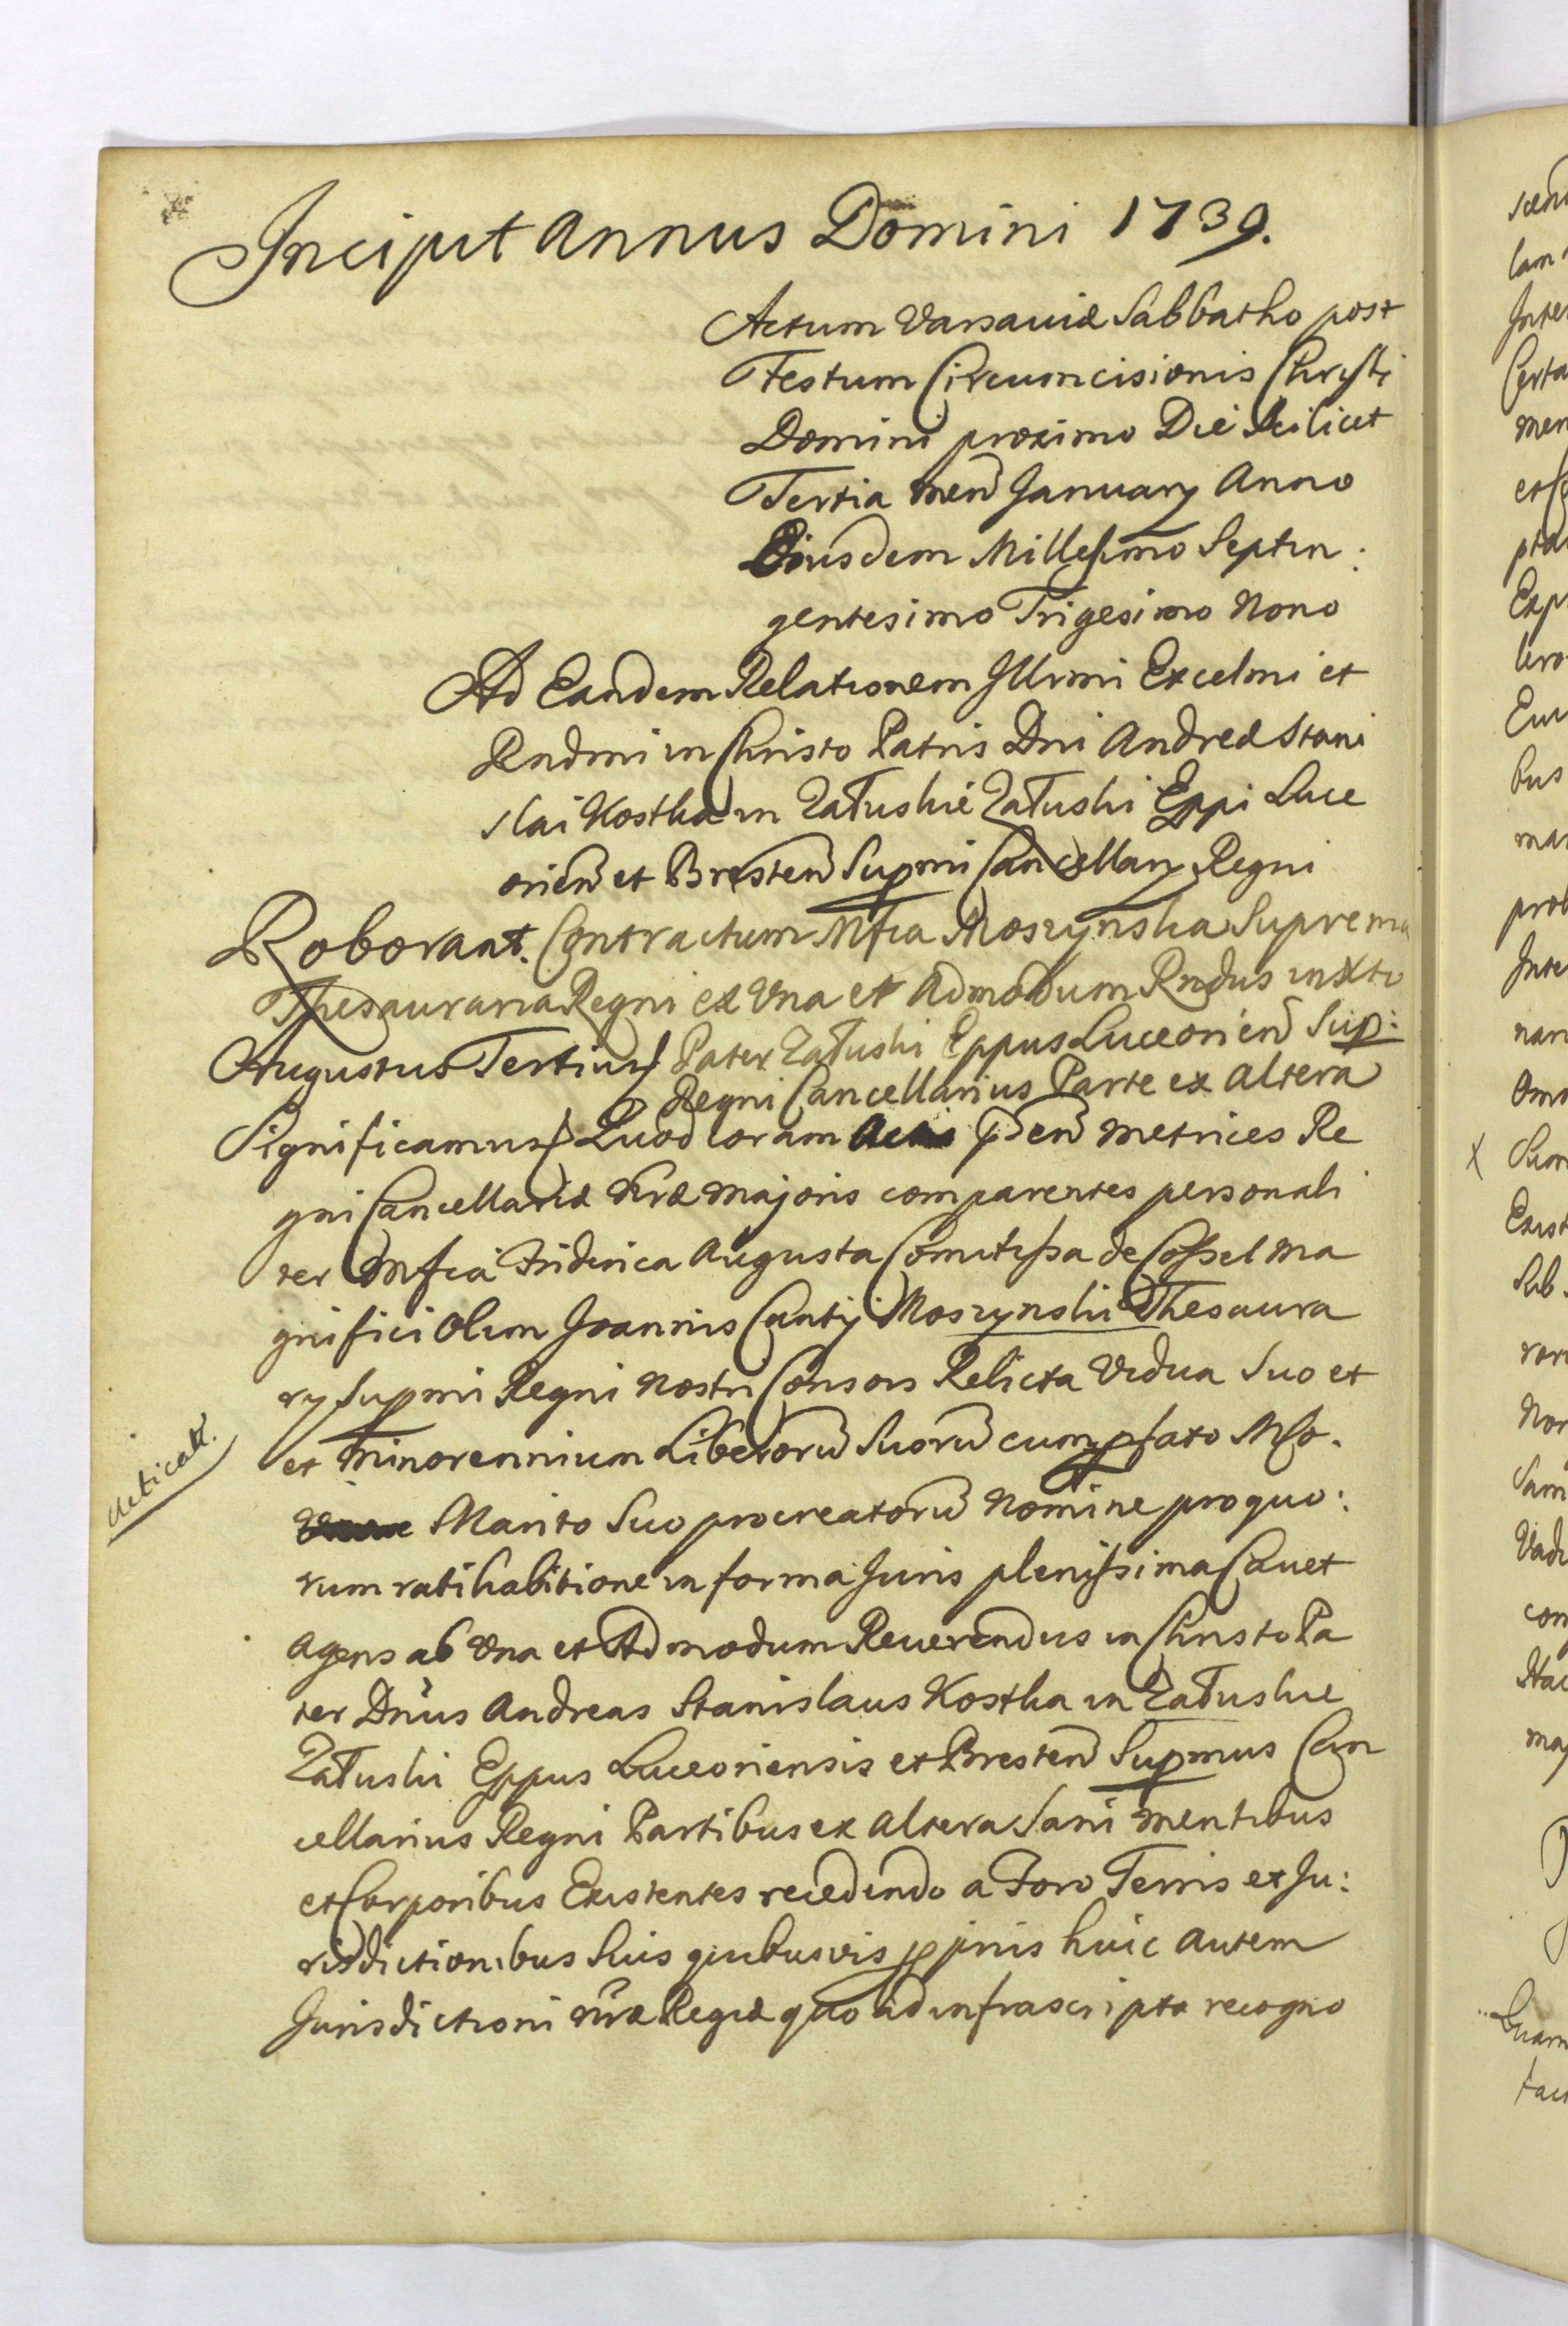 Incipit Annus Domini 1739.
Actum Varsaviæ Sabbatho post
Festum Circumcisionis Christi
Domini proximo Die Scilicet
Tertia men January Anno
Eiusdem Millesimo Septin:
gentesimo Trigesimo Nono
Ad Eandem Relationem Illrmi Excelmi et
Rndmi in Christo Patris Dni Andreæ Stani
slai Kostka in Załuskie Załuski Eppi Luce
orien et Bresten Supmi Cancellary Regni
Roborant. Contractum Mfca Moszynska Suprema
Thesauraria Regni ex Una et Admodum Rndus in Xto
Augustus Tertius Pater Załuski Eppus Luceorien Sup:
Regni Cancellarius Parte ex altera
Significamus Quod coram Actis pden Metrices Re
gni Cancellariæ Nræ Majoris comparentes personali
ter Mfca Friderica Augusta Comitissa de Cossel Ma
gnifici Olim Joannis Canty Moszynski Thesaura
ry Supmi Regni Nostri Consors Relicta Vidua Suo et
et Minorennium Liberorū Suorū cum pfato Mfo.
Marito Suo procreatorū Nomine pro quo:
rum ratihabitione in forma Juris plenissima Cavet
agens ab Una et Admodum Reverendus in Christo Pa
ter Dnus Andreas Stanislaus Kostka in Załuskie
Załuski Eppus Luceoriensis et Bresten Supmus Can
cellarius Regni Partibus ex altera Sani Mentibus
et Corporibus Existentes recedendo a Foro Terris et Ju:
risdictionibus Suis quibusvis pprijs huic autem
Jurisdictioni Nræ Regiæ quo ad infrascripta recogno
Acticat.